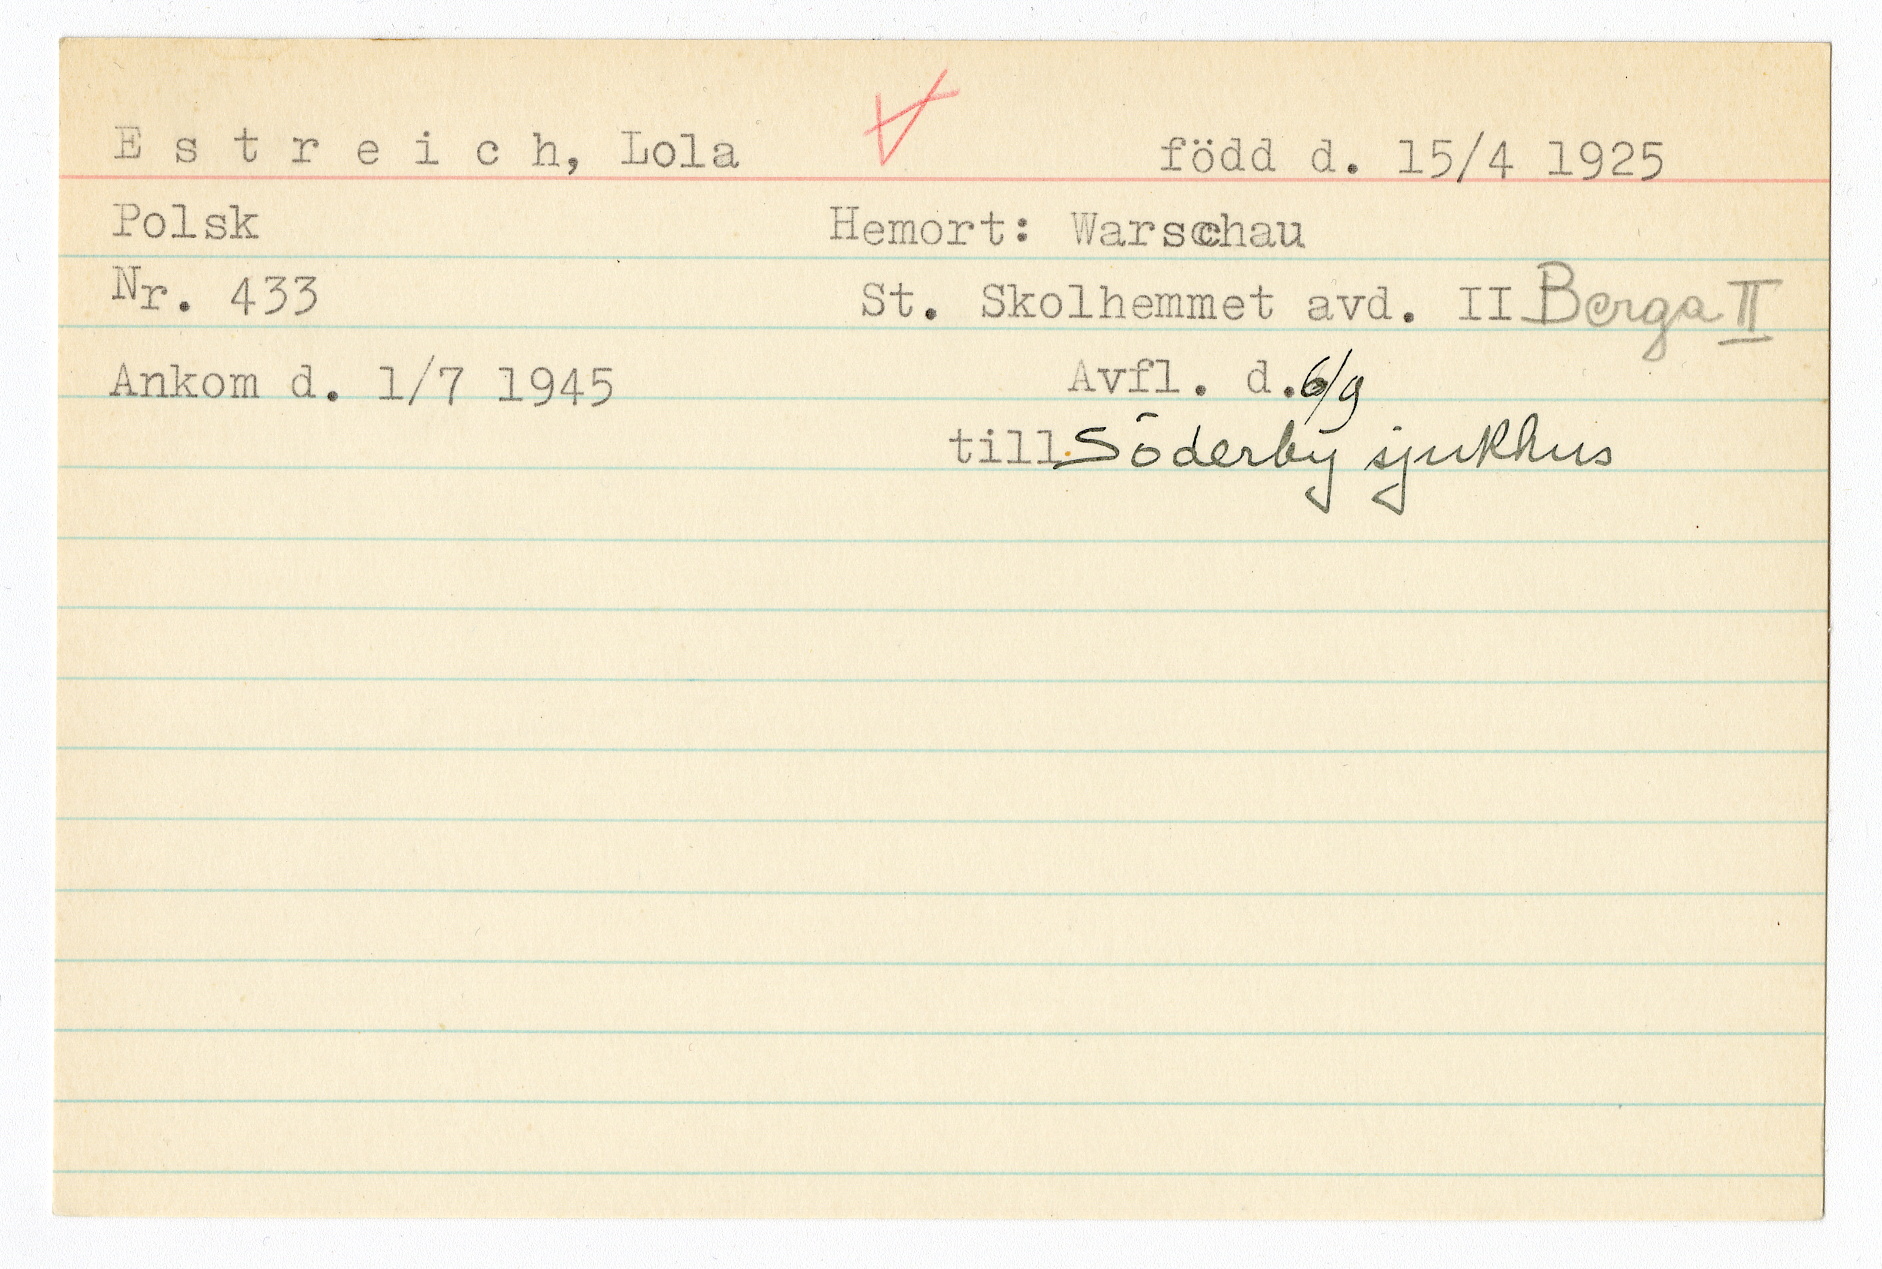 E s t r e i c h, Lola född d. 15/4 1925
Polsk Hemort: Warschau
Nr. 433 St. Skolhemmet avd. II Berga II
Ankom d. 1/7 1945 Avfl. d. 6/9
till Söderby sjukhus